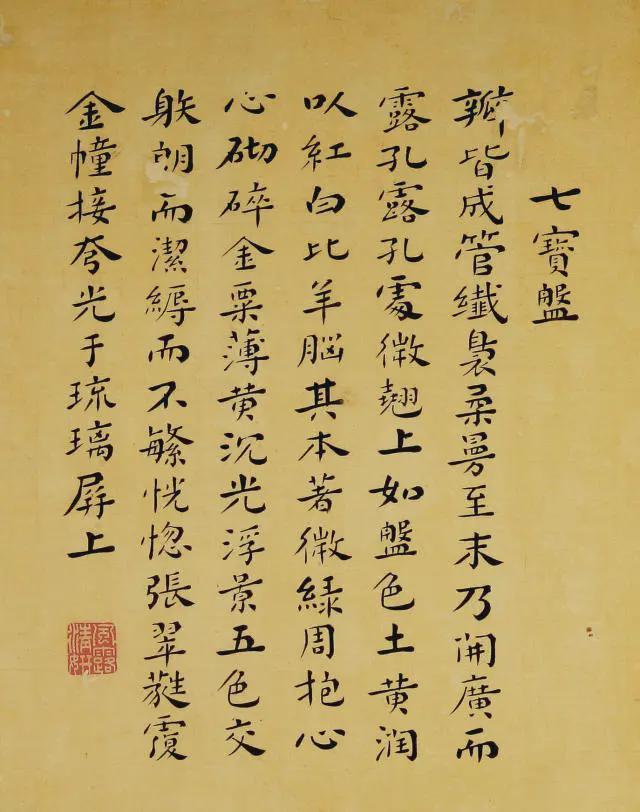 七寳盤
瓣皆成管纖裊柔曼至末乃開廣而
露孔露孔處微翹上如盤色土黄润
以紅白比羊脳其本著微緑周抱心
心砌碎金粟薄黄沉光浮景五色交
躲朗而潔縟而不繁恍惚張翠蕤覆
金幢接夸光于琉璃屏上